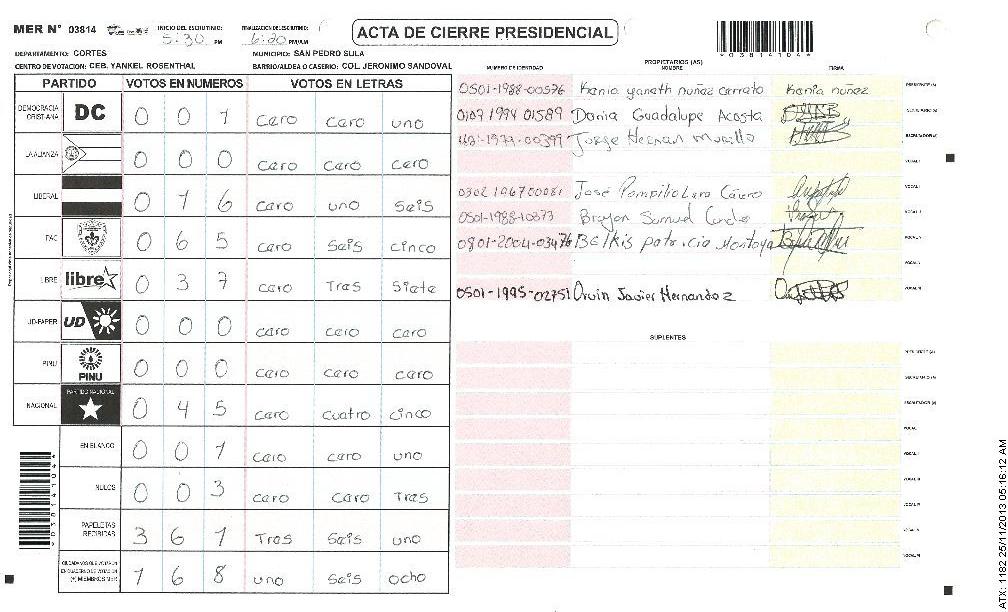 MER N° 03814 INICIO DEL ESCRUTINIO: 5:30 PM FINALIZACION DEL ESCRUTINIO: 6:20 PM/AM ACTA DE CIERRE PRESIDENCIAL
DEPARTAMENTO: CORTES MUNICIPIO: SAN PEDRO SULA
CENTRO DE VOTACION: CEB. YANKEL ROSENTHAL BARRIO/ALDEA O CASERIO: COL. JERONIMO SANDOVAL
PARTIDO VOTOS EN NUMEROS VOTOS EN LETRAS
DEMOCRACIA CRISTIANA DC 0 0 1 caro caro uno
LA ALIANZA 0 0 0 caro caro cero
LIBERAL 0 1 6 caro uno seis
PAC 0 6 5 caro seis cinco
LIBRE libre 0 3 7 caro Tras siete
UD-FAPER UD 0 0 0 caro cero cero
PINU PINU 0 0 0 caro caro caro
NACIONAL PARTIDO NACIONAL 0 4 5 caro cuatro cinco
EN BLANCO 0 0 1 caro caro uno
NULOS 0 0 3 caro caro Tras
PAPELETAS RECIBIDAS 3 6 1 Tras seis uno
CIUDADANOS QUE VOTARON EN CUADERNO DE VOTACION (+) MIEMBROS MER 1 6 8 uno seis ocho
PROPIETARIOS (AS)
NUMERO DE IDENTIDAD NOMBRE FIRMA
0501-1988-00576 Kenia yaneth nuñez carrato Kenia nuñez PRESIDENTE (A)
0107 1994 01589 Dania Guadalupe Acosta SECRETARIO (A)
1971-00399 Jorge Hernan Murillo ESCRUTADOR (A)
VOCAL I
0302 196700081 José Pompilio
0501-1988-10873 Brayan Samuel
0801-2004-03476 Belkis patricia Montoya
0501-1995-02751 Orvin Javier Hernandez
SUPLENTES
PRESIDENTE (A)
SECRETARIO (A)
ESCRUTADOR (A)
ATX: 1182 25/11/2013 05:16:12 AM